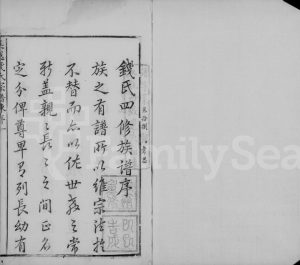 錢氏四修族譜序
族之有譜所以維宗法於
不替而亦以佐世敎之常
新蓋親親長長之間正名
定分俾尊卑有列長幼有
FamilySea